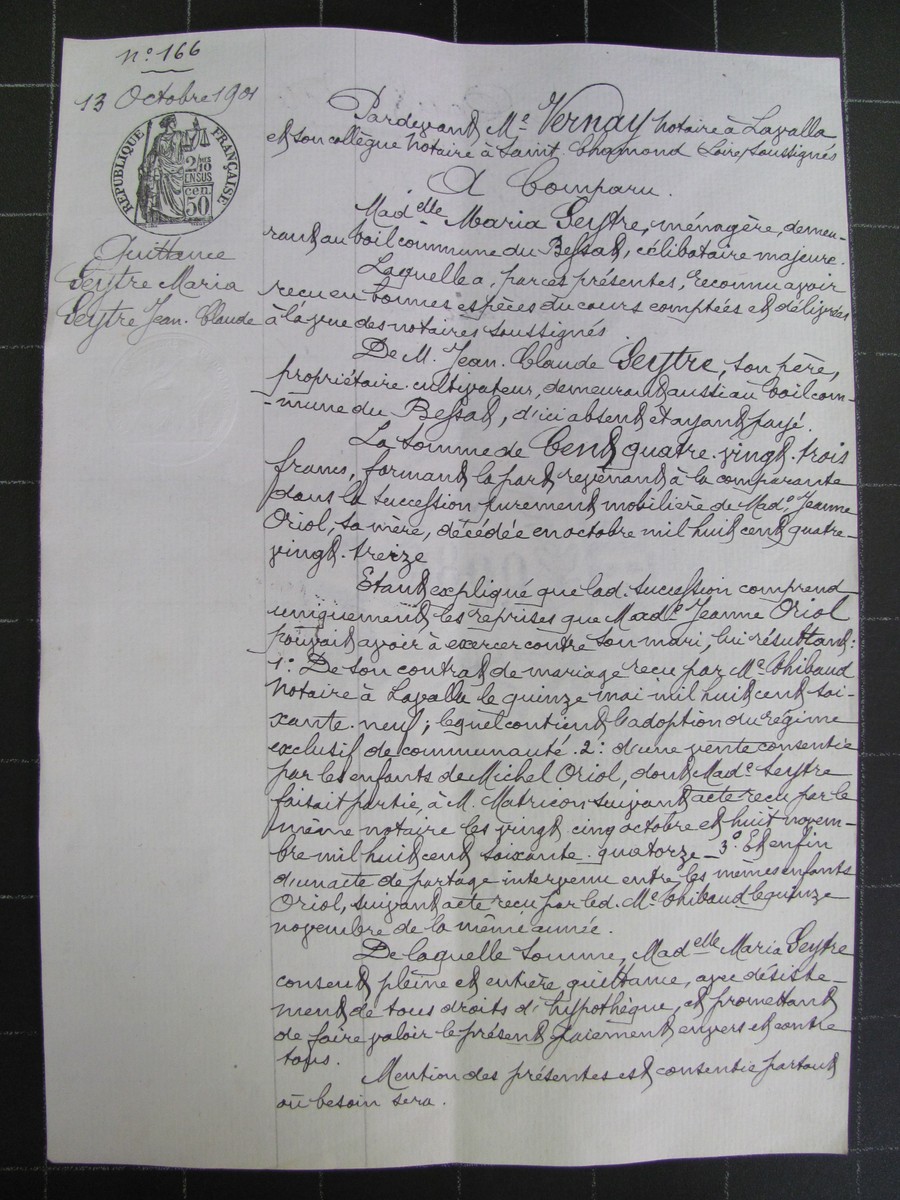 n° 166
13 Octobre 1901
RÉPUBLIQUE FRANÇAISE
2/10 EN SUS
50 cen.
Quittance
Seytre Maria
Seytre Jean-Claude
Pardevant Me Vernay notaire à Lavalla
et son collègue notaire à Saint-Chamond Loire, soussignés
A Comparu.
Madelle Maria Seytre, ménagère, demeu-
rant au Toil commune du Bessat, célibataire majeure.
Laquelle a, par ces présentes, reconnu avoir
recu en bonnes espèces du cours comptées et délivrées
à la vue des notaires soussignés
De M. Jean-Claude Seytre, son père,
propriétaire-cultivateur, demeurant aussi au Toil com-
-mune du Bessat, d'ici absent et ayant payé.
La somme de Cent quatre-vingt-trois
francs, formant la part revenant à la comparante
dans la succession purement mobilière de Made Jeanne
Oriol, sa mère, décédée en octobre mil huit cent quatre-
vingt-treize
Etant expliqué que lad. succession comprend
uniquement les reprises que Made Jeanne Oriol
pouvait avoir à exercer contre son mari, lui résultant:
1° De son contrat de mariage recu par Me Thibaud
notaire à Lavalla le quinze mai mil huit cent soi-
xante-neuf; lequel contient l'adoption du régime
exclusif de communauté. 2° d'une vente consentie
par les enfants de Michel Oriol, dont Made Seytre
faisait partie, à M. Matricon suivant acte recu par le
même notaire les vingt cinq octobre et huit novem-
bre mil huit cent soixante-quatorze - 3° Et enfin
d'un acte de partage intervenu entre les mêmes enfants
Oriol, suivant acte recu par led. Me Thibaud le quinze
novembre de la même année.
De laquelle somme, Madelle Maria Seytre
consent pleine et entière quittance, avec désiste-
ment de tous droits d'hypothèque, et promettant
de faire valoir le présent paiement envers et contre
tous.
Mention des présentes est consentie partout
où besoin sera.